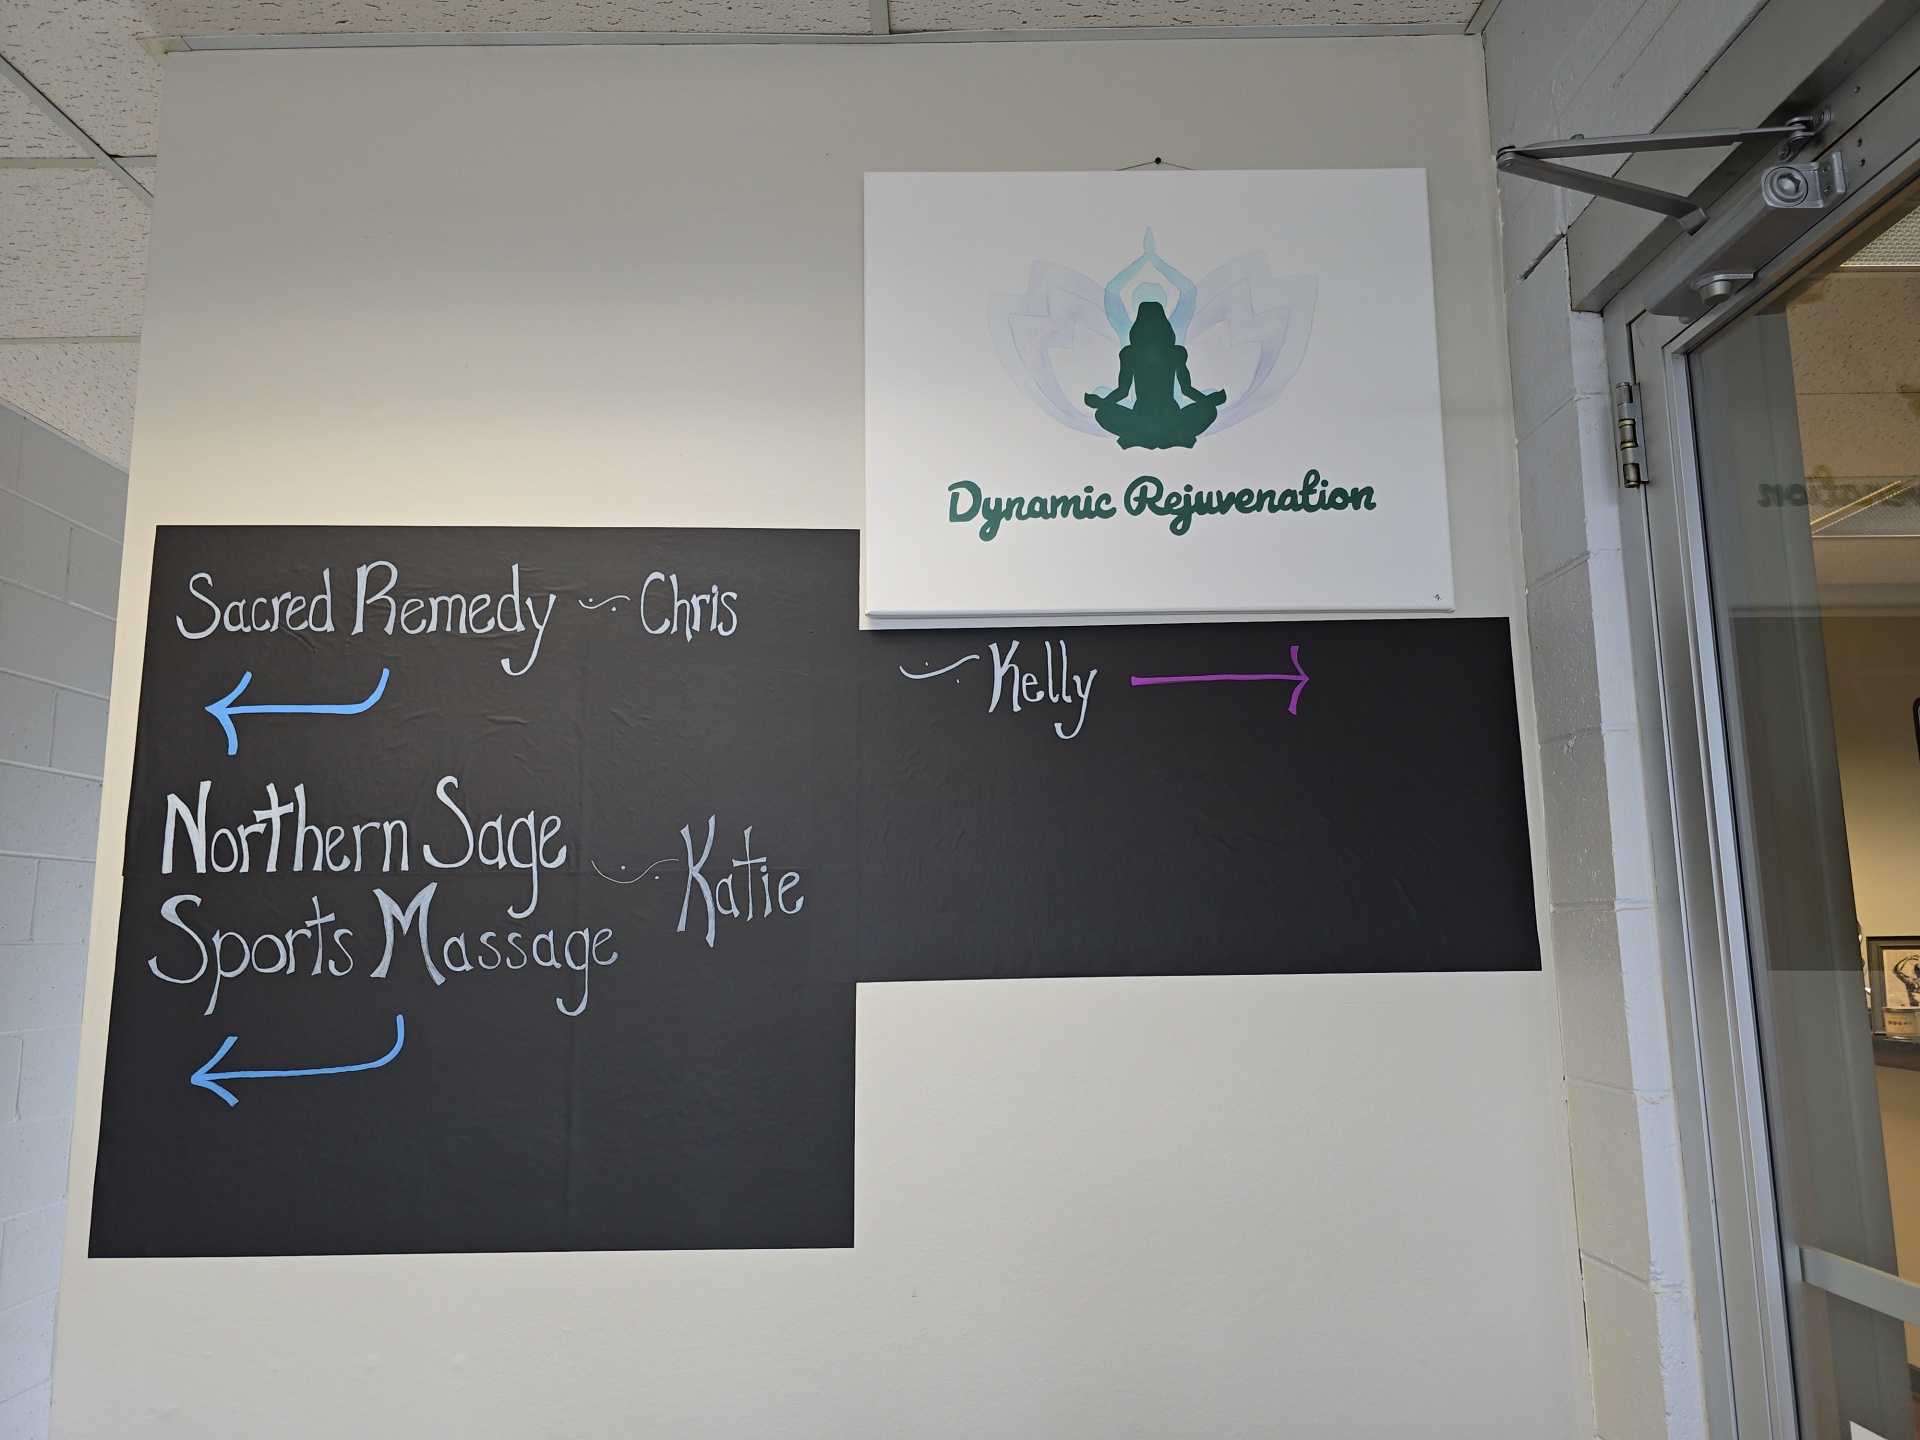 Dynamic Rejuvenation
Sacred Remedy ~ Chris
~ Kelly
Northern Sage
Sports Massage
~ Katie